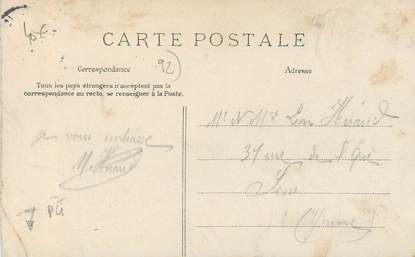 40€
CARTE POSTALE
Correspondance
92)
Adresse
Tous les pays étrangers n'acceptent pas la
correspondance au recto, se renseigner à la Poste.
je vous embrasse
M. Héraud
PLI
Mr & Mme Léon Héraud
37 rue de
Sens
(Yonne)